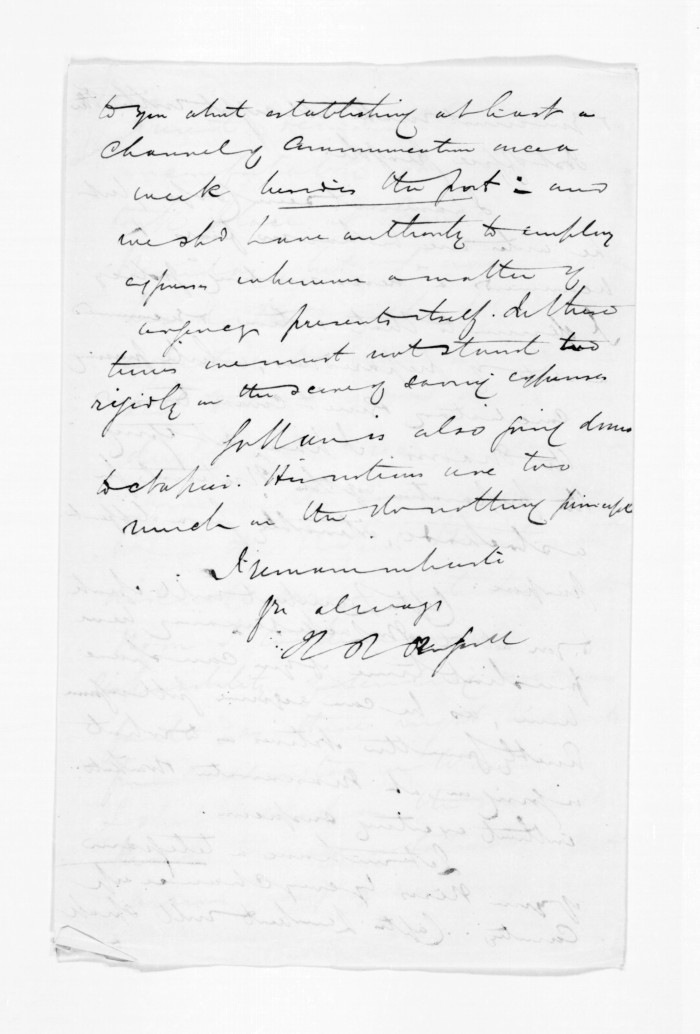 to you about establishing at least a
Channel of Communication once a
week besides the post - and
we shd have authority to employ
expresses whenever a matter of
urgency presents itself. In these
times we must not stand too
rigidly on the score of saving expenses
is also going down
to . His notions are too
much on the do nothing principle
I remain in haste
Yrs always